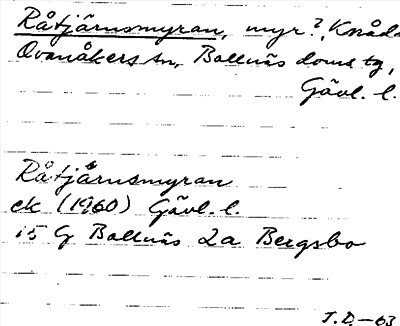 Råtjärnsmyran, myr?, Knåda
Ovanåkers sn, Bollnäs doms tg,
Gävl. l.
Råtjärnsmyran
ek (1960) Gävl. l.
15 G Bollnäs 2a Bergsbo
T.D.-63